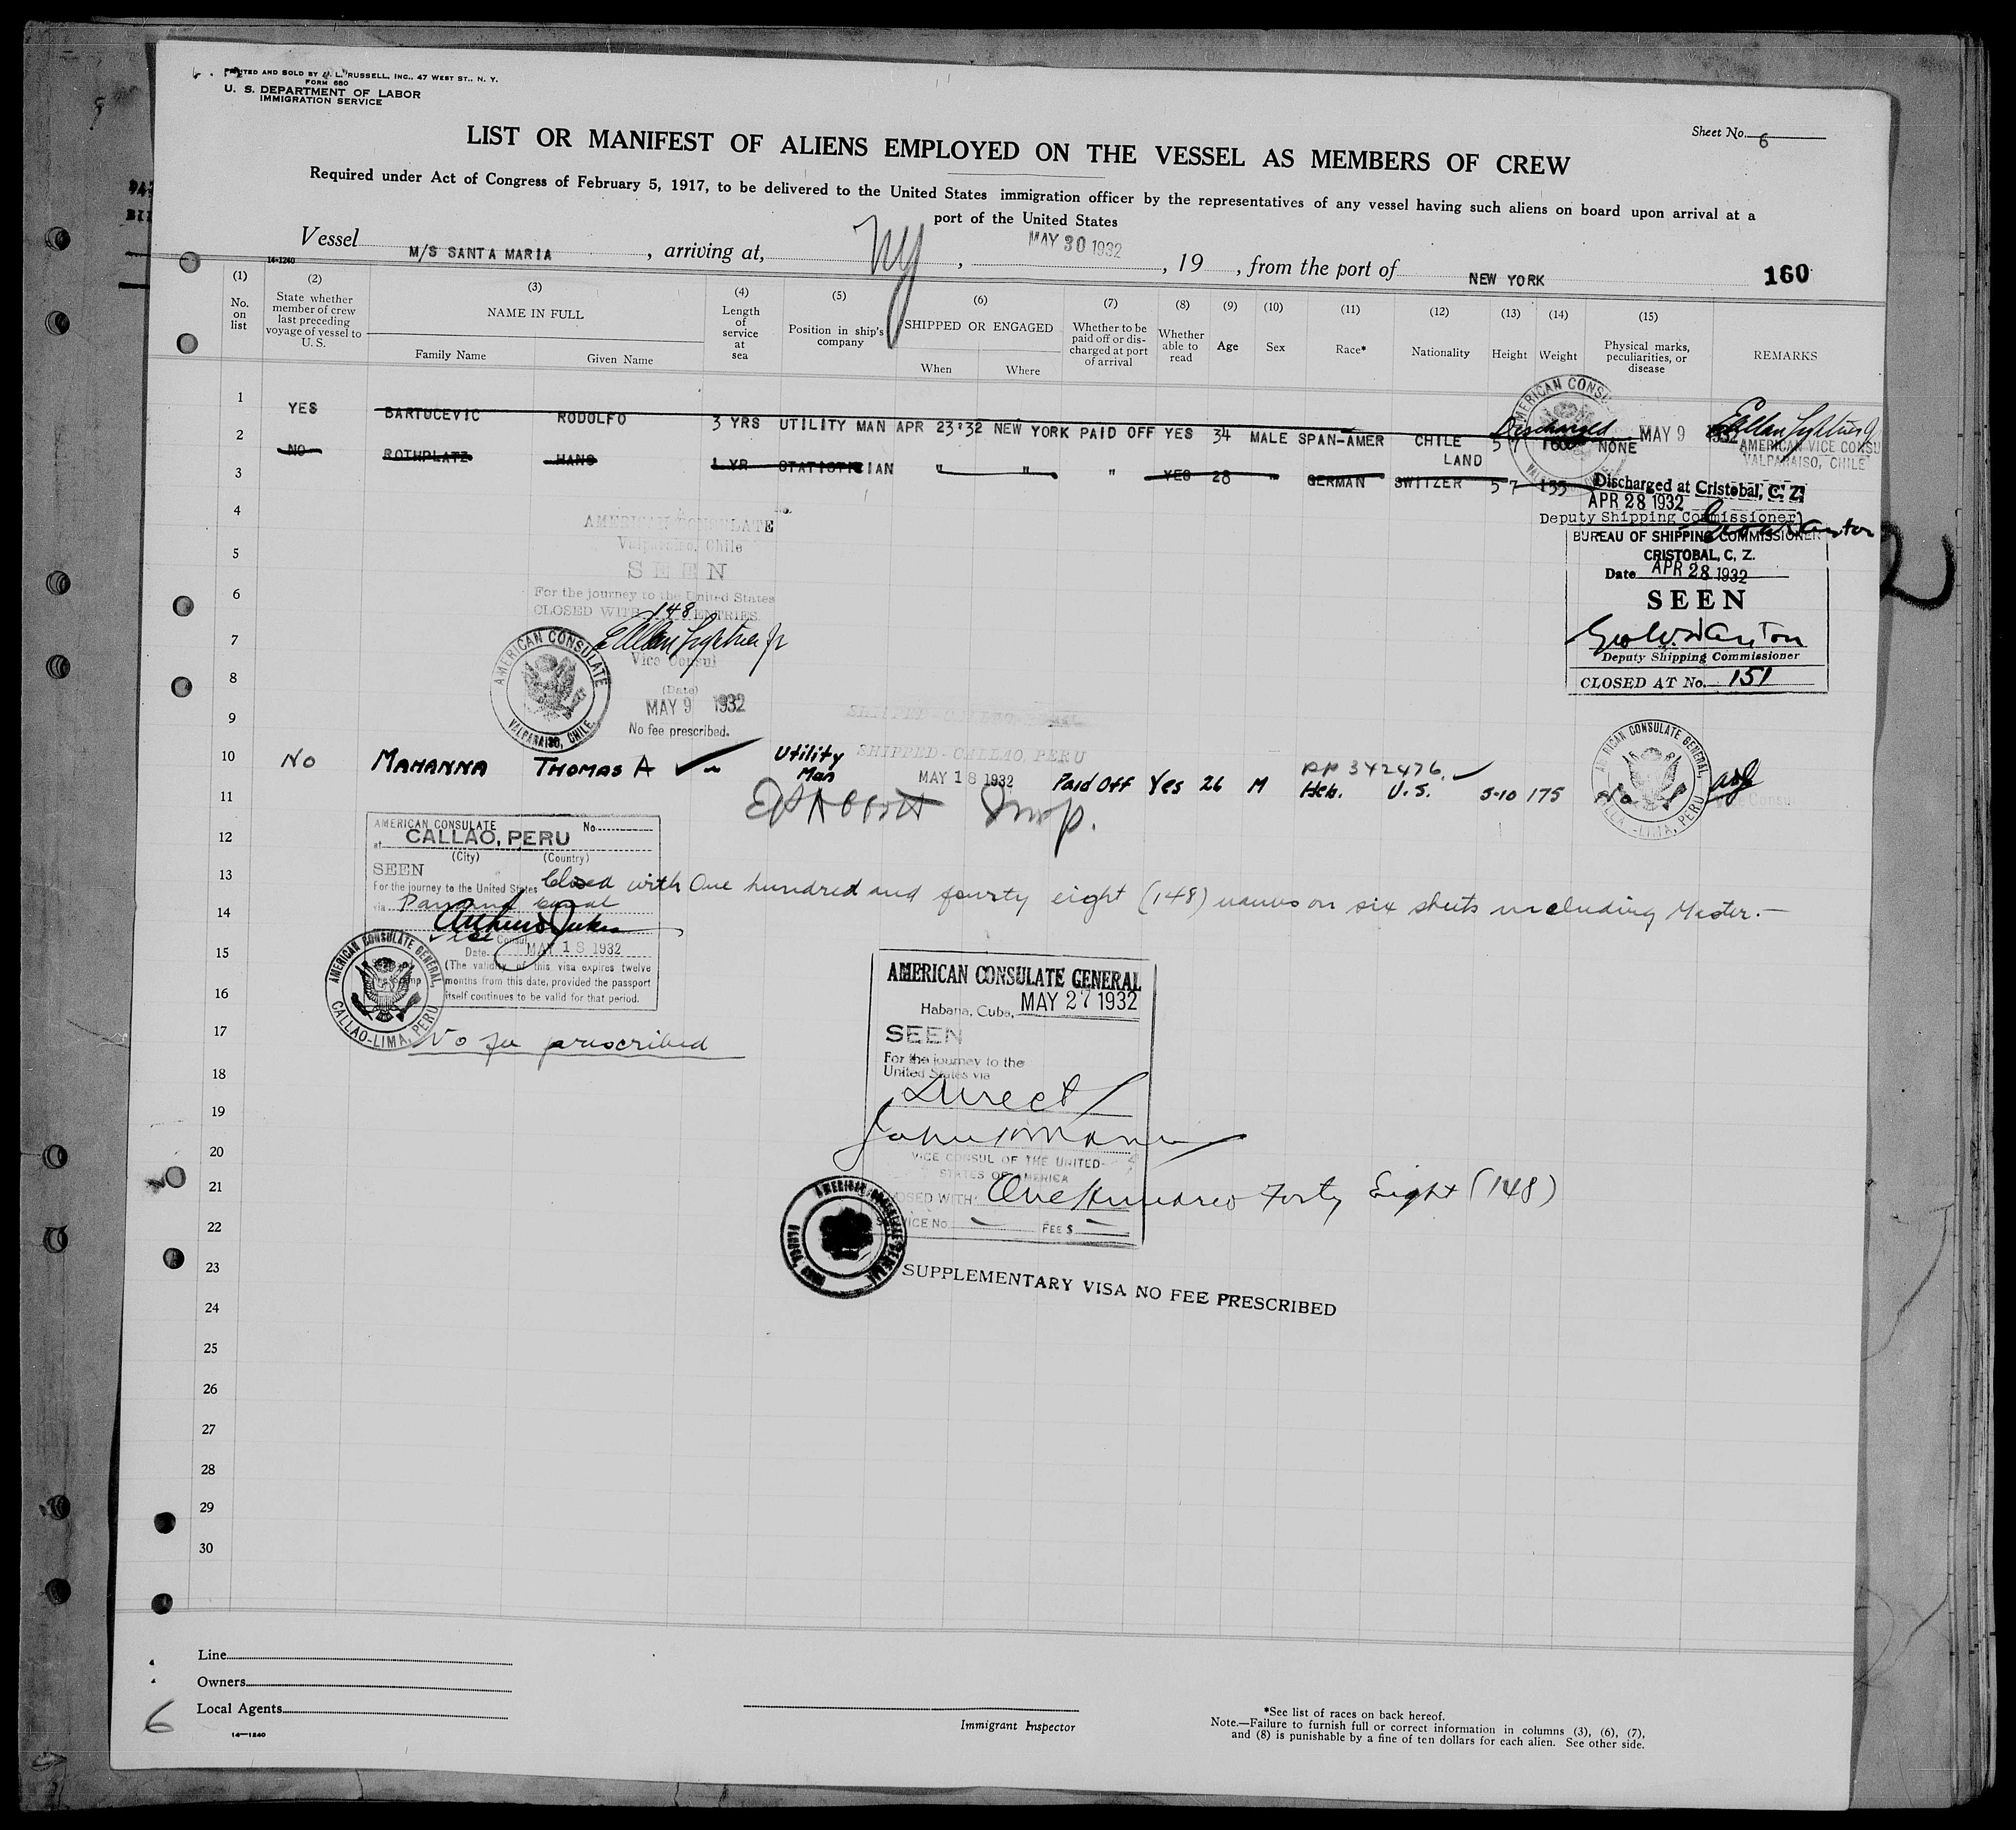 PRINTED AND SOLD BY J. L. RUSSELL, INC., 47 WEST ST., N. Y.
FORM 680
U. S. DEPARTMENT OF LABOR
IMMIGRATION SERVICE
Sheet No. 6
LIST OR MANIFEST OF ALIENS EMPLOYED ON THE VESSEL AS MEMBERS OF CREW
Required under Act of Congress of February 5, 1917, to be delivered to the United States immigration officer by the representatives of any vessel having such aliens on board upon arrival at a
port of the United States
Vessel M/S SANTA MARIA, arriving at, NY, MAY 30 1932, 19, from the port of NEW YORK 160
14-1240
(1) (2) (3) (4) (5) (6) (7) (8) (9) (10) (11) (12) (13) (14) (15)
No. on list
State whether member of crew last preceding voyage of vessel to U. S.
NAME IN FULL
Family Name Given Name
Length of service at sea
Position in ship's company
SHIPPED OR ENGAGED
When Where
Whether to be paid off or discharged at port of arrival
Whether able to read
Age Sex Race* Nationality Height Weight
Physical marks, peculiarities, or disease
REMARKS
1
YES BARTUCEVIC RODOLFO 3 YRS UTILITY MAN APR 23'32 NEW YORK PAID OFF YES 34 MALE SPAN-AMER CHILE 5 7 160 NONE
Discharged MAY 9 1932
AMERICAN VICE CONSU
VALPARAISO, CHILE
2
NO ROTHPLATZ HANS 1 YR STATISTICIAN " " " YES 28 " GERMAN SWITZERLAND 5 7 155
3
Discharged at Cristobal, C. Z.
APR 28 1932
Deputy Shipping Commissioner
BUREAU OF SHIPPING COMMISSIONER
CRISTOBAL, C. Z.
Date APR 28 1932
SEEN
Deputy Shipping Commissioner
CLOSED AT No. 151
4
AMERICAN CONSULATE
Valparaiso, Chile
5
SEEN
For the journey to the United States
6
CLOSED WITH 148 ENTRIES
7
Vice Consul
AMERICAN CONSULATE
VALPARAISO, CHILE
8
(Date)
MAY 9 1932
No fee prescribed.
9
SHIPPED-CALLAO, PERU
10
No MAHANNA THOMAS A Utility Man MAY 18 1932 Paid Off Yes 26 M Heb. U.S. 5-10 175 No
PP 342476
11
AMERICAN CONSULATE No.
at CALLAO, PERU
(City) (Country)
12
SEEN
For the journey to the United States
via Panama Canal
13
Closed with One hundred and fourty eight (148) names on six sheets including Master.—
14
Vice Consul
Date MAY 18 1932
15
(The validity of this visa expires twelve
months from this date, provided the passport
itself continues to be valid for that period.
AMERICAN CONSULATE GENERAL,
CALLAO-LIMA, PERU
16
17
No fee prescribed
AMERICAN CONSULATE GENERAL
Habana, Cuba, MAY 27 1932
SEEN
For the journey to the
United States via
18
Direct
19
20
VICE CONSUL OF THE UNITED
STATES OF AMERICA
21
CLOSED WITH: One Hundred Forty Eight (148)
22
SERVICE No. — FEE $ —
23
SUPPLEMENTARY VISA NO FEE PRESCRIBED
24
25
26
27
28
29
30
Line
Owners
Local Agents
14—1240
6
Immigrant Inspector
*See list of races on back hereof.
Note.—Failure to furnish full or correct information in columns (3), (6), (7),
and (8) is punishable by a fine of ten dollars for each alien. See other side.